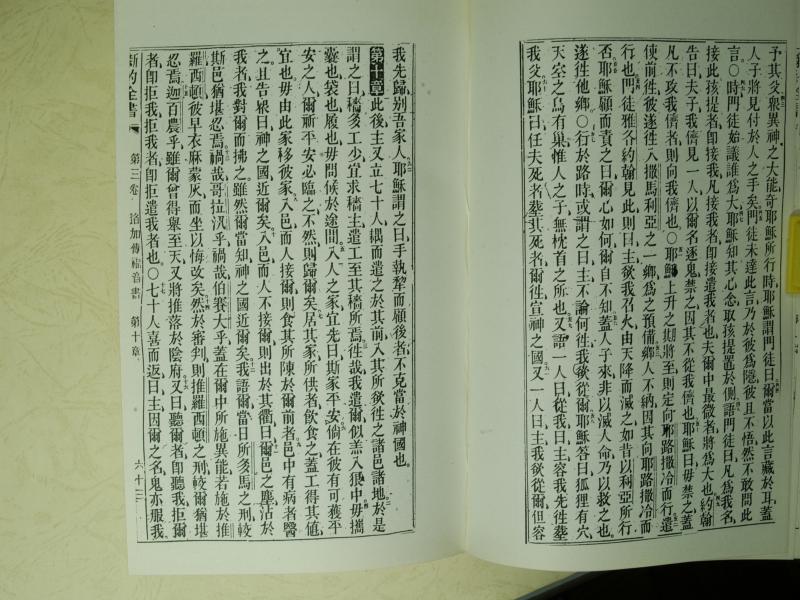 予其父眾異神之大能奇耶穌所行時耶穌謂門徒曰爾當以此言藏於耳蓋
人子將見付於人之手矣門徒未達此言乃於彼為隱彼且不悟然不敢問此
言○時門徒始議誰為大耶穌知其心念取孩提置於側語門徒曰凡為我名
接此孩提者即接我凡接我者即接遣我者也夫爾中最微者將為大也約翰
告曰夫子我儕見一人以爾名逐鬼禁之因其不從我儕也耶穌曰毋禁之蓋
凡不攻我儕者則向我儕也○耶穌上升之期將至則定向耶路撒冷而行遣
使前往彼遂往入撒馬利亞之一鄉為之預備鄉人不納因其向耶路撒冷而
行也門徒雅各約翰見此則曰主欲我召火由天降而滅之如昔以利亞所行
否耶穌顧而責之曰爾心如何爾自不知蓋人子來非以滅人命乃以救之也
遂往他鄉○行於路時或謂之曰主不論何往我欲從爾耶穌答曰狐狸有穴
天空之鳥有巢惟人之子無枕首之所也又語一人曰從我曰主容我先往葬
我父耶穌曰任夫死者葬其死者爾往宣神之國又一人曰主我欲從爾但容
我先歸別吾家人耶穌謂之曰手執犂而顧後者不克當於神國也
第十章此後主又立七十人耦而遣之於其前入其所欲往之諸邑諸地於是
謂之曰穡多工少宜求穡主遣工至其穡所焉往哉我遣爾似羔入狼中毋攜
囊也袋也履也毋問候於途間入人之家宜先曰斯家平安倘在彼有可獲平
安之人爾所平安必臨之不然則歸爾矣居其家所供者飲食之蓋工得其值
宜也毋由此家移彼家入邑而人接爾則食其所陳於爾前者邑中有病者醫
之且告眾曰神之國近爾矣入邑而人不接爾則出於其衢曰爾邑之塵沾於
我者我對爾而拂之雖然爾當知神之國近爾矣我語爾當日所多馬之刑較
斯邑猶堪忍焉禍哉哥拉汛乎禍哉伯賽大乎蓋在爾中所施異能若施於推
羅西頓彼早衣麻蒙灰而坐以悔改矣然於審判則推羅西頓之刑較爾猶堪
忍焉迦百農乎雖爾曾得舉至天又將推落於陰府又曰聽爾者即聽我拒爾
者即拒我拒我者即拒遣我者也○七十人喜而返曰主因爾之名鬼亦服我
新約全書 第三卷 路加傳福音書 第十章 六十三